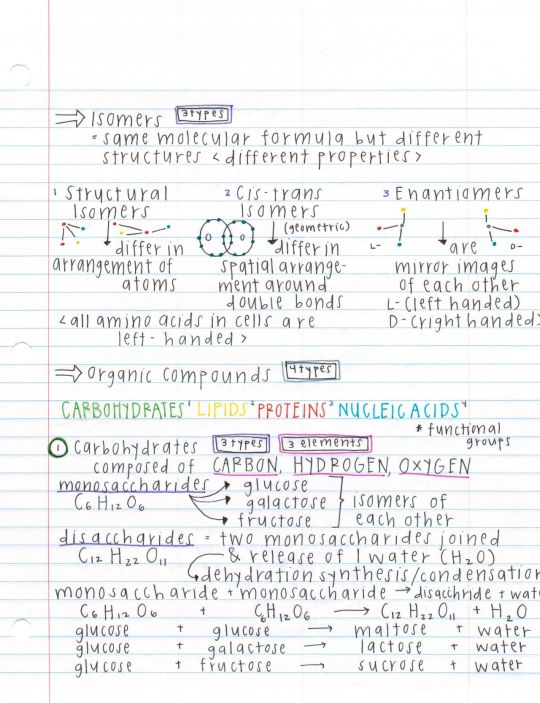 ⇒ Isomers 3 types
= same molecular formula but different
structures < different properties >
1 Structural
Isomers
differ in
arrangement of
atoms
2 Cis-trans
Isomers
(geometric)
differ in
spatial arrange-
ment around
double bonds
3 Enantiomers
L- D-
are
mirror images
of each other
L-(left handed)
D-(right handed)
< all amino acids in cells are
left-handed >
⇒ Organic compounds 4 types
CARBOHYDRATES¹ LIPIDS² PROTEINS³ NUCLEIC ACIDS⁴
* functional
groups
1 Carbohydrates 3 types 3 elements
composed of CARBON, HYDROGEN, OXYGEN
monosaccharides → glucose
C₆H₁₂O₆ → galactose } isomers of
→ fructose each other
disaccharides = two monosaccharides joined
C₁₂H₂₂O₁₁ & release of 1 water (H₂O)
dehydration synthesis/condensation
monosaccharide + monosaccharide → disachride + wat
C₆H₁₂O₆ + C₆H₁₂O₆ → C₁₂H₂₂O₁₁ + H₂O
glucose + glucose → maltose + water
glucose + galactose → lactose + water
glucose + fructose → sucrose + water